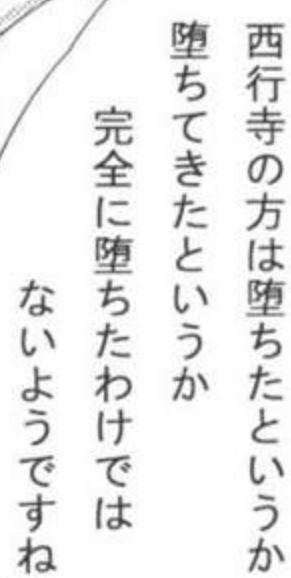 西行寺の方は堕ちたというか
堕ちてきたというか
完全に堕ちたわけでは
ないようですね